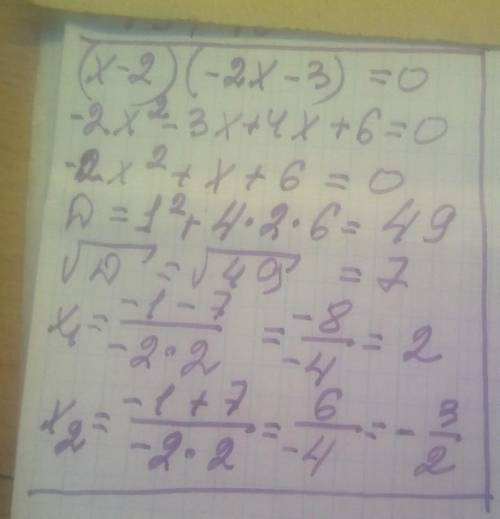 (x-2)(-2x-3) = 0
-2x²-3x+4x+6=0
-2x²+x+6=0
D=1²+4·2·6=49
√D = √49 = 7
x₁ = (-1-7)/(-2·2) = -8/-4 = 2
x₂ = (-1+7)/(-2·2) = 6/-4 = -3/2